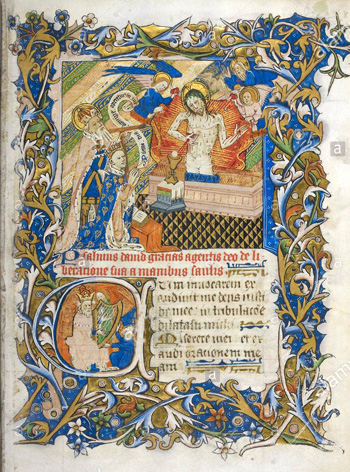 Psalmus dauid gracias agentis deo de li
beracione sua a manibus saulis
Cum inuocarem ex
audiuit me deus iusti
cie mee in tribulacōe
dilatasti michi
Miserere mei et ex
audi orationem me
am
a
a